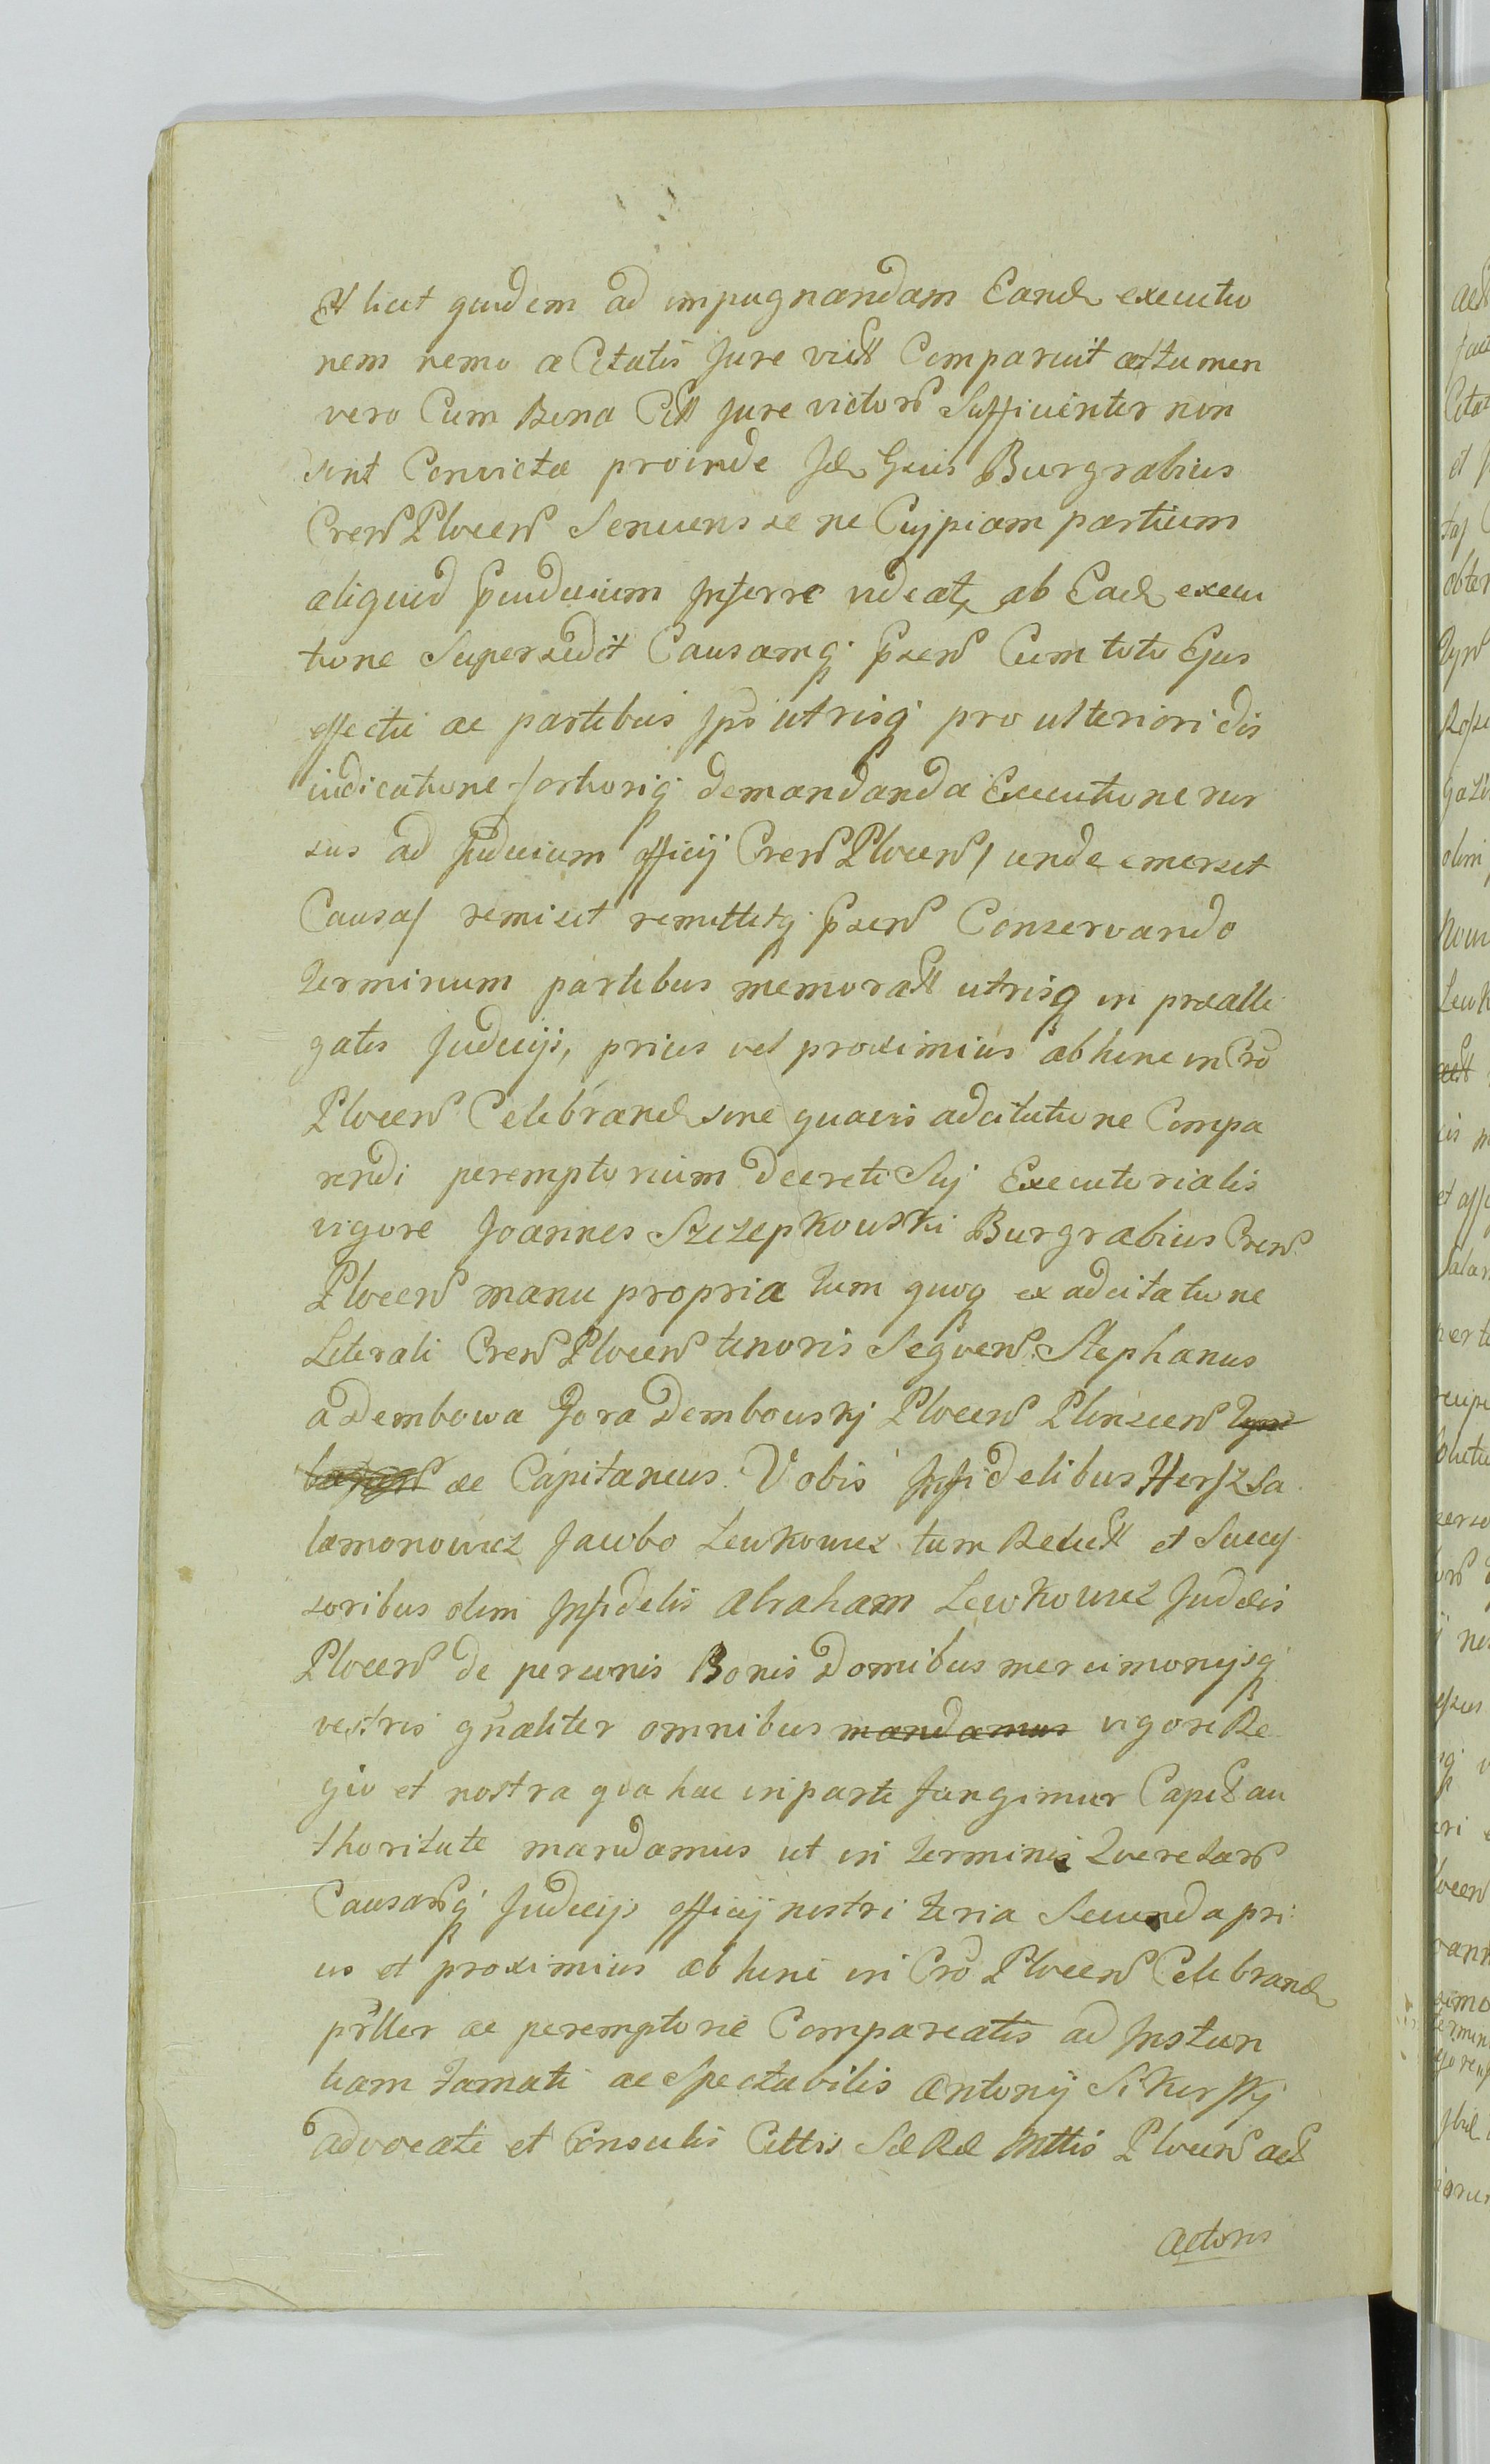 Et licet quidem ad impugnandam Eand executio
nem nemo a Citatis Jure vict Comparuit attamen
vero Cum Bona Citt Jure victors Sufficienter non
sint Convicta proinde Id Gsus Burgrabius
Cren Plocen Senciens se ne Cujpiam partium
aliquid pjudicium Inferre videat, ab Ead execu
tione Supersedit Causamq psen Cum toto Ejus
effectu ac partibus Ips utrisq pro ulteriori dis
iudicatione fortioriq demandanda Executione rur
sus ad Judicium officij Cren Plocen / unde emersit
Causa / remisit remittitq psen Conservando
Terminum partibus memoratt utrisq in prealle
gatis Judicijs, prius vel proximius abhinc in Cro
Plocen Celebrand sine quavis adcitatione Compa
rendi peremptorium decreti Suj Executorialis
vigore Joannes Szczepkouski Burgrabius Cren
Plocen manu propria tum quoq ex adcitatione
Literali Cren Plocen tenoris Seqven. Stephanus
a Dembowa Gora Dembouskj Plocen Plinscen
ac Capitaneus. Vobis Infidelibus Hersz Sa
lamonowicz Jacobo Lewkowicz tum Relict et Succes
soribus olim Infidelis Abraham Lewkowicz Judeis
Plocen de personis Bonis Domibus mercimonijsq
vestris gnaliter omnibus mandamus vigore Re
gio et nostra qva hac in parte fungimur Capit au
thoritate mandamus ut in Terminis Qverelar
Causarq Judicijs officij nostri feria Secunda pri
us et proximius abhinc in Cro Plocen Celebrand
psller ac peremptorie Compareatis ad Instan
tiam Famati ac Spectabilis Antonij Sikorskj
advocati et Consulis Cittis S R Mttis Plocen act
Actoris